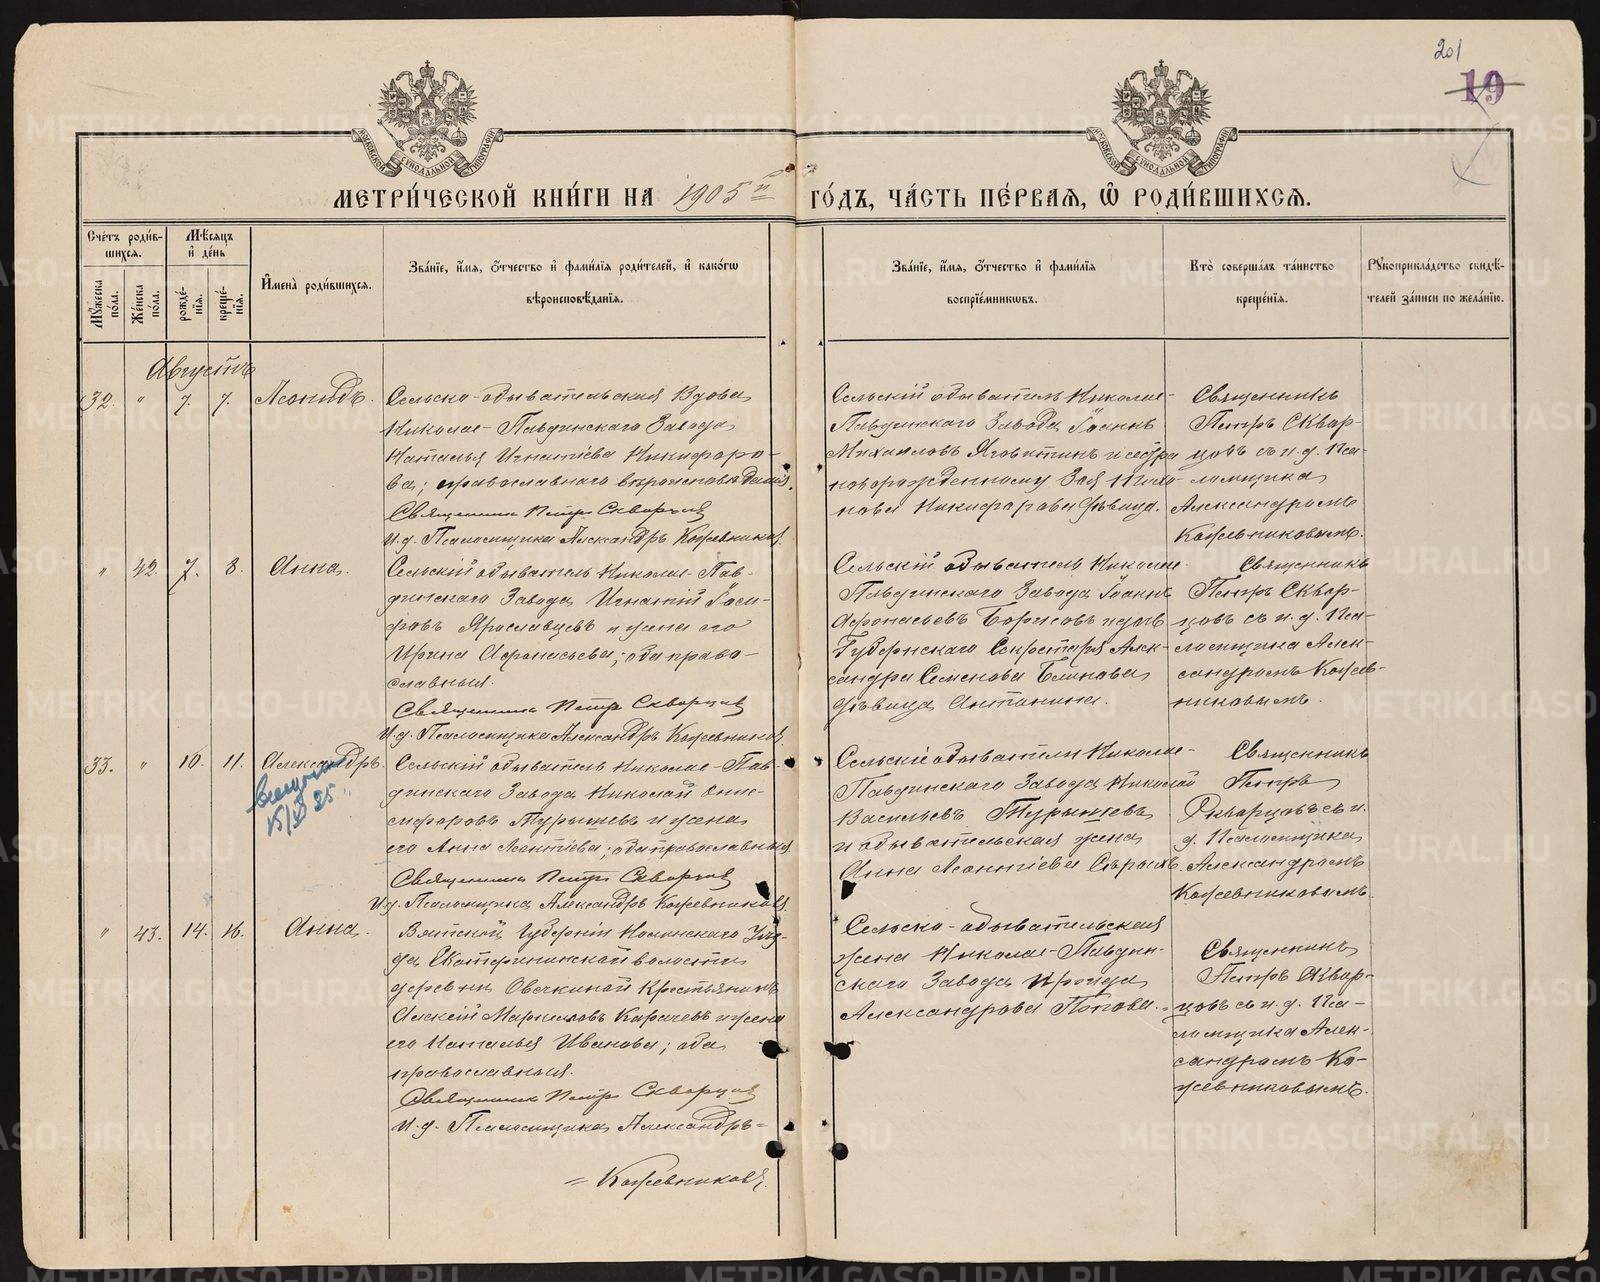 201
19
МЕТРИ́ЧЕСКОЙ КНИ́ГИ НА 1905 й ГО́ДЪ, ЧА́СТЬ ПЕ́РВАЯ, Ѡ РОДИ́ВШИХСЯ.
Сче́тъ роди́в-
шихся.
Мѣ́сяцъ
и҆ де́нь
Му́жеска по́ла.
Же́нска по́ла.
рожде́-
нїя.
креще́-
нїя.
И҆мена̀ роди́вшихся.
Зва́нїе, и҆́мя, ѻ҆́тчество и҆ фами́лїя роди́телей, и҆ како́гѡ
вѣроисповѣ́данїя.
Зва́нїе, и҆́мя, ѻ҆́тчество и҆ фами́лїя
воспрїе́мникѡвъ.
Кто̀ соверша́лъ та́инство
креще́нїя.
Рꙋкоприкла́дство свидѣ́-
телей за́писи по жела́нїю.
Августъ
32. " 7. 7. Леонидъ.
Сельско-обывательская вдова
Николае-Павдинскаго Завода
Наталья Игнатіева Никифоро-
ва; православнаго вѣроисповѣданія.
Священникъ Петръ Скворцовъ
И.д. Псаломщика Александръ Кожевниковъ.
Сельскій обыватель Николае-
Павдинскаго Завода Іоаннъ
Михаиловъ и сестра
новорожденному Зоя
нова Никифорова дѣвица.
Священникъ
Петръ Сквор-
цовъ съ и.д. Пса-
ломщика
Александромъ
Кожевниковымъ.
" 42. 7. 8. Анна.
Сельскій обыватель Николае-Пав-
динскаго Завода Игнатій Іоси-
фовъ Ярославцевъ и жена его
Ирина Афонасьева; оба право-
славныя.
Священникъ Петръ Скворцовъ
И.д. Псаломщика Александръ Кожевниковъ.
Сельскій обыватель Николае-
Павдинскаго Завода Іоаннъ
Афонасьевъ Борисовъ и дочь
Губернскаго Секретаря Алек-
сандра Семенова
дѣвица Антонина.
Священникъ
Петръ Сквор-
цовъ съ и.д. Пса-
ломщика Алек-
сандромъ Кожев-
никовымъ.
33. " 10. 11. Александръ.
25
Сельскій обыватель Николае-Пав-
динскаго Завода Николай Они-
сифоровъ Турышевъ и жена
его Анна Леонтіева; оба православныя.
Священникъ Петръ Скворцовъ
И.д. Псаломщика Александръ Кожевниковъ.
Сельскіе обыватели Николае-
Павдинскаго Завода Николай
Васильевъ Турышевъ
и обывательская жена
Анна Леонтіева
Священникъ
Петръ
Скворцовъ съ и.
д. Псаломщика
Александромъ
Кожевниковымъ.
" 43. 14. 16. Анна.
Вятской Губерніи Нолинскаго Уѣз-
да волости
деревни Овечкиной Крестьянинъ
Алексій Маркеловъ и жена
его Наталья Иванова; оба
православныя.
Священникъ Петръ Скворцовъ
И.д. Псаломщика Александръ =
= Кожевниковъ.
Сельско-обывательская
жена Николае-Павдин-
скаго Завода Ироида
Александрова Попова.
Священникъ
Петръ Сквор-
цовъ съ и.д. Пса-
ломщика Алек-
сандромъ Ко-
жевниковымъ.
METRIKI.GASO-URAL.RU